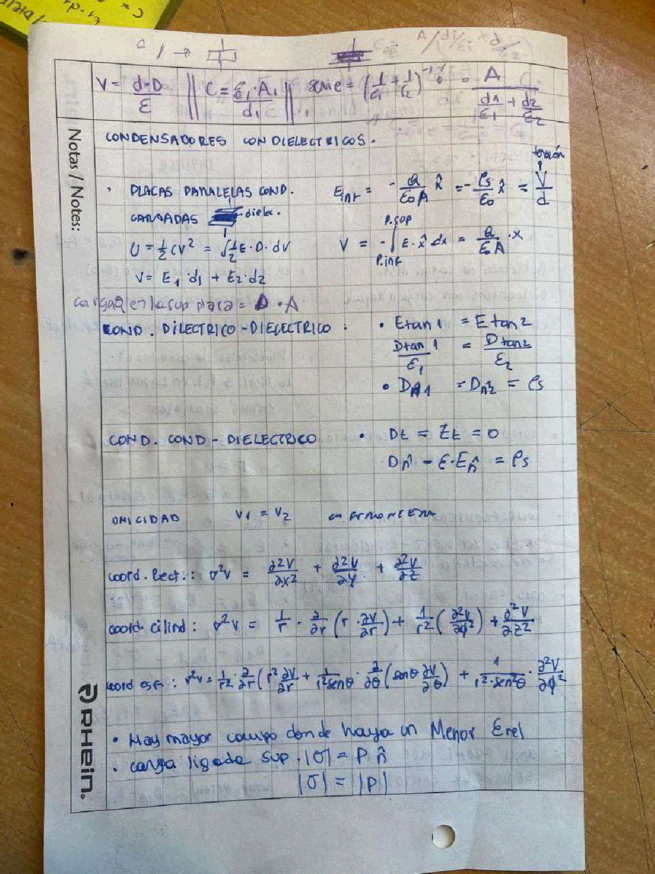 V = d·D/ε || C = ε₁·A₁/d₁ || serie = (1/ε₁ + 1/ε₂)⁻¹ = A/(d1/ε₁ + d2/ε₂)
Notas / Notes:
CONDENSADORES CON DIELECTRICOS.
· PLACAS PARALELAS COND. CARGADAS dielec.
E int = -Q/(ε₀A) x̂ = -ρs/ε₀ x̂ = V/d
tensión
U = ½CV² = ∫½E·D·dV
V = -∫ E·x̂ dx = Q/(ε₀A)·x
P.SUP
P.inf
V = E₁·d₁ + E₂·d₂
carga en la sup placa = D·A
COND. DILECTRICO-DIELECTRICO :
• Etan1 = Etan2
Dtan1/ε₁ = Dtan2/ε₂
• Dn1 = Dn2 = ρs
COND. COND-DIELECTRICO
• Dt = Et = 0
Dn̂ - ε·En̂ = ρs
UNICIDAD V₁ = V₂
coord. Rect.: ∇²V = ∂²V/∂x² + ∂²V/∂y + ∂²V/∂z
coord cilind: ∇²V = 1/r · ∂/∂r (r·∂V/∂r) + 1/r² (∂²V/∂φ²) + ∂²V/∂z²
coord esf: ∇²V = 1/r² ∂/∂r (r² ∂V/∂r + 1/r²senθ · ∂/∂θ (senθ ∂V/∂θ) + 1/r²·sen²θ · ∂²V/∂φ²
• Hay mayor campo donde haya un Menor Erel
• carga ligada sup. |σ| = P n̂
|σ| = |P|
RHein.